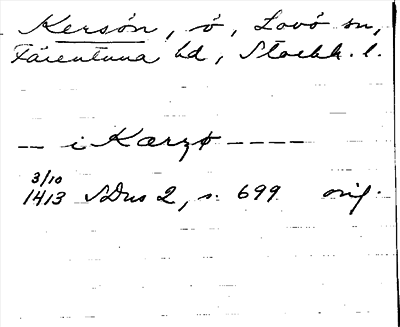 Kersön, ö, Lovö sn,
Färentuna hd, Stockh. l.
-- i Karzø ----
3/10
1413 SDns 2, s. 699 orig.